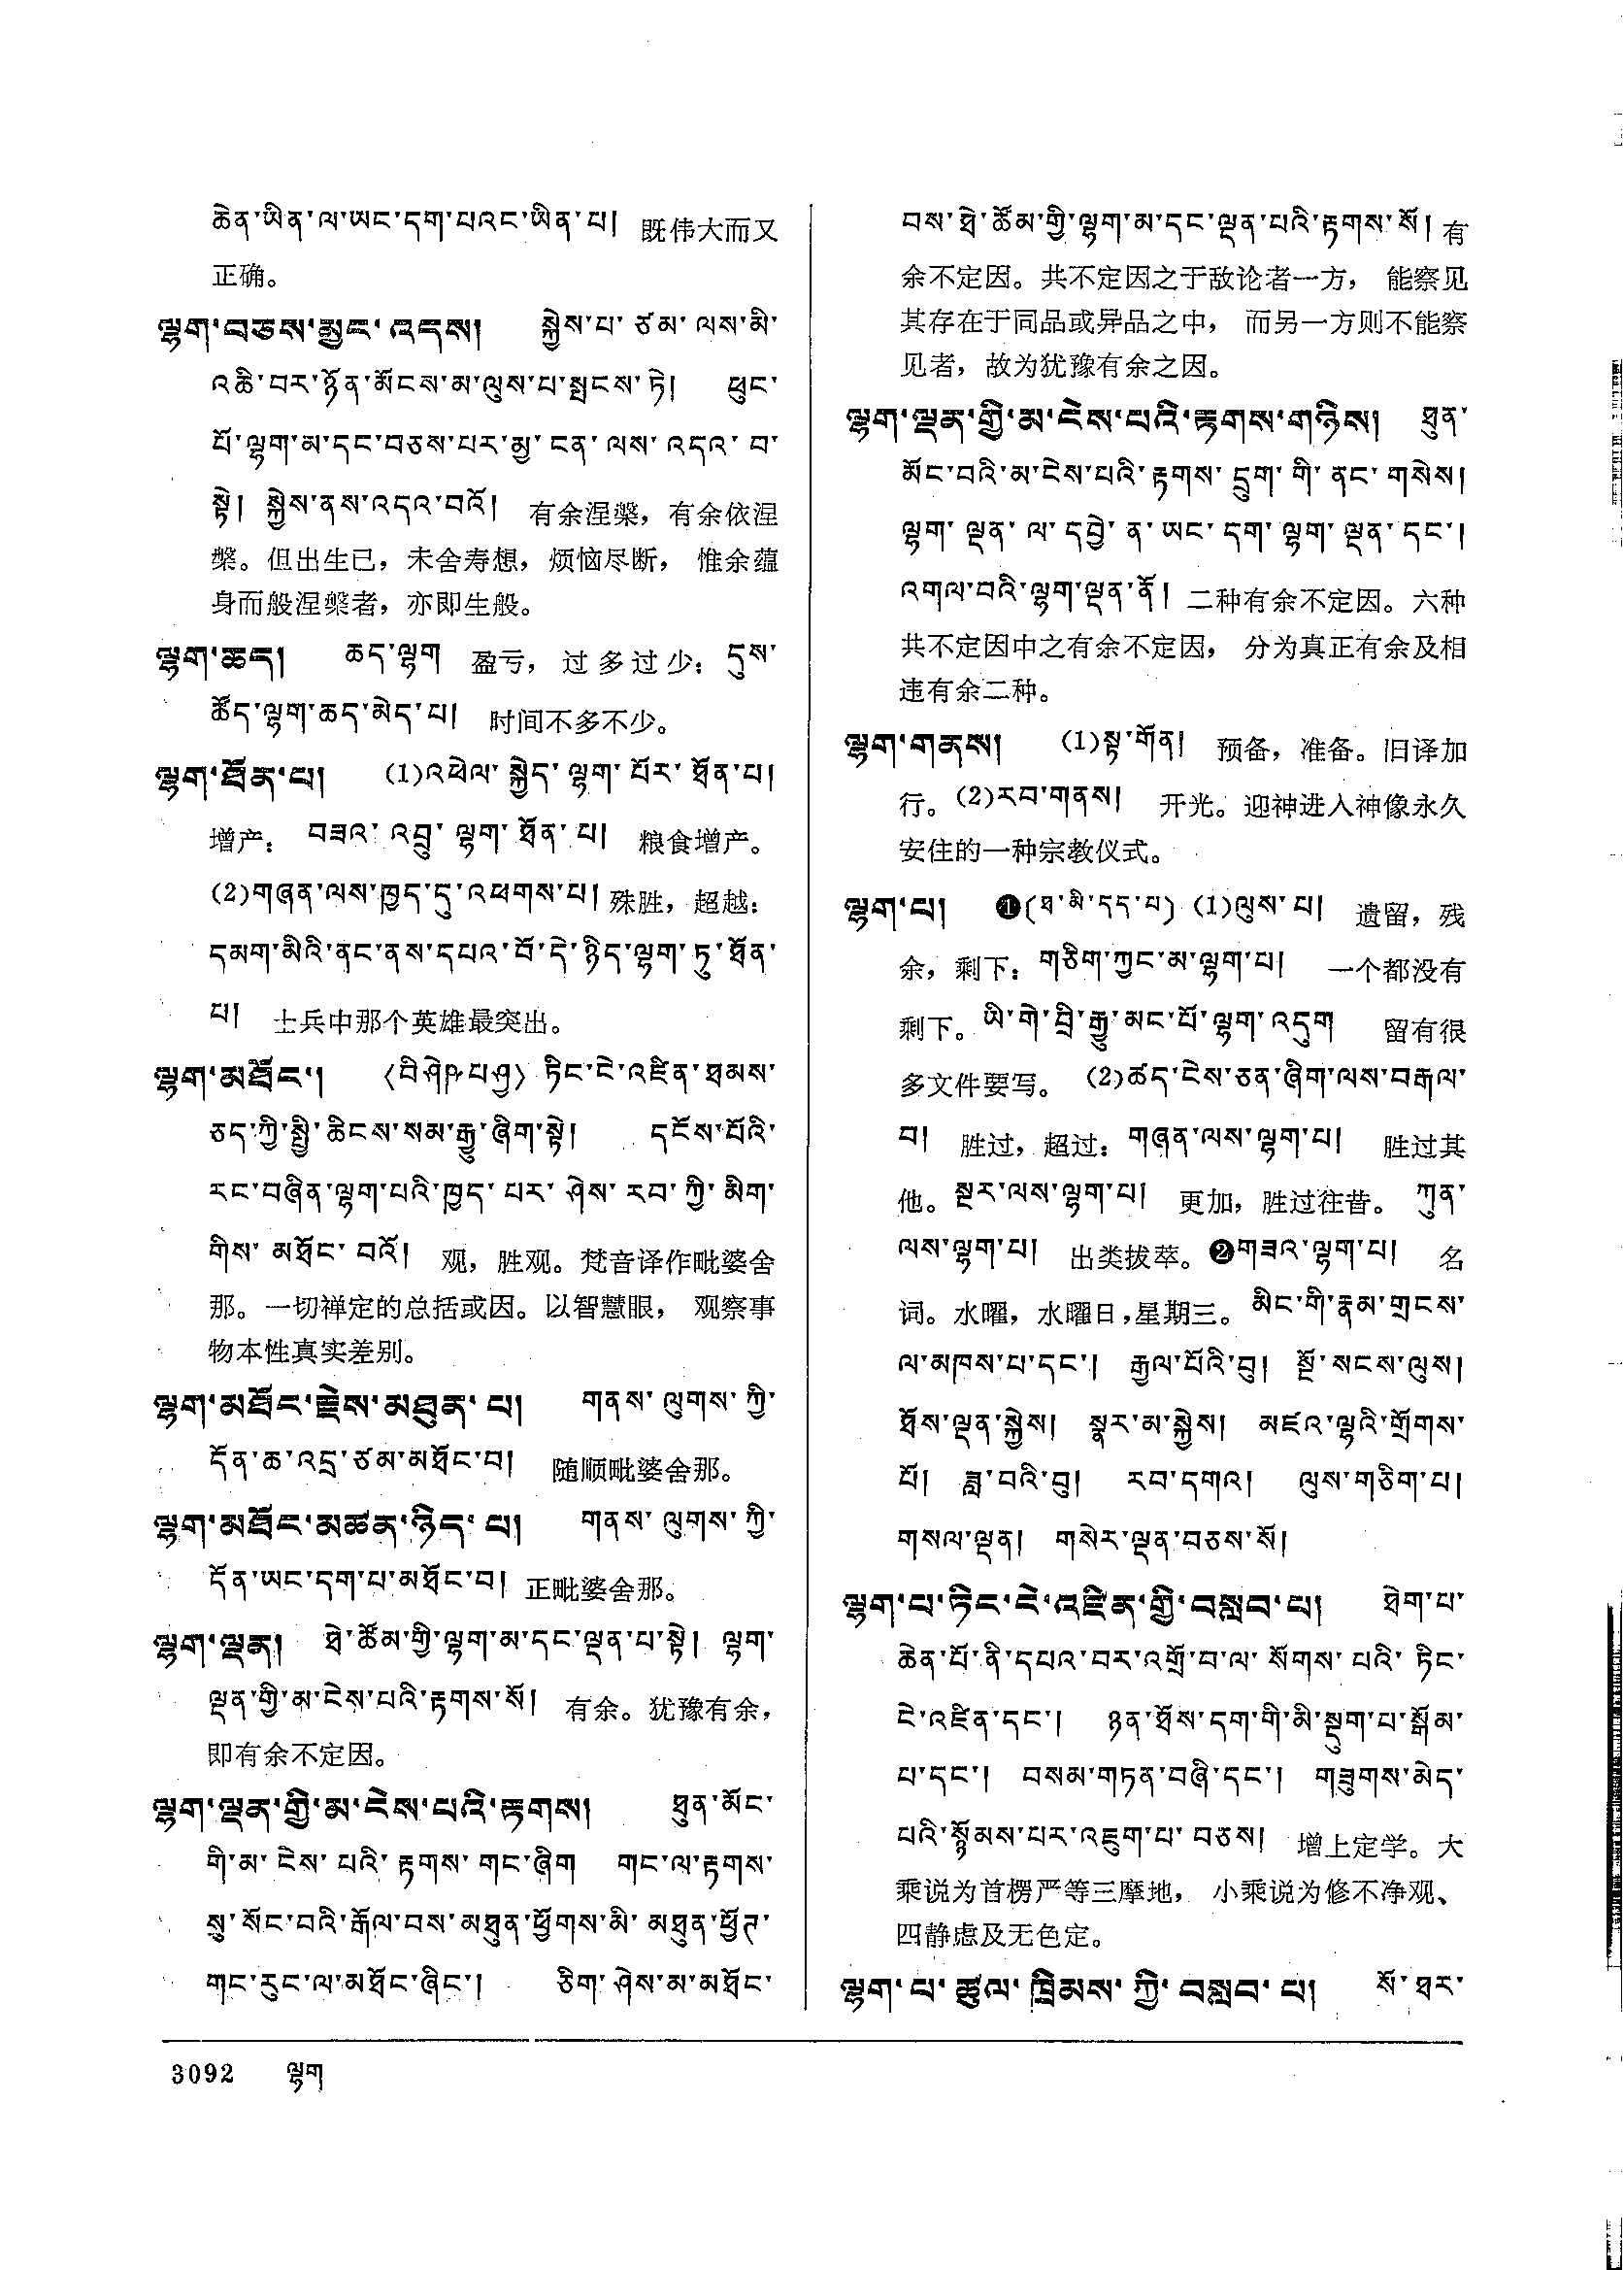 ཆེན་ཡིན་ལ་ཡང་དག་པའང་ཡིན་པ། 既伟大而又
正确。
ལྷག་བཅས་མྱང་འདས། སྐྱེས་པ་ཙམ་ལས་མི་
འཆི་བར་ཉོན་མོངས་མ་ལུས་པ་སྤངས་ཏེ། ཕུང་
པོ་ལྷག་མ་དང་བཅས་པར་མྱ་ངན་ལས་འདའ་བ་
སྟེ། སྐྱེས་ནས་འདའ་བའོ། 有余涅槃，有余依涅
槃。但出生已，未舍寿想，烦恼尽断，惟余蕴
身而般涅槃者，亦即生般。
ལྷག་ཆད། ཆད་ལྷག 盈亏，过多过少：དུས་
ཚོད་ལྷག་ཆད་མེད་པ། 时间不多不少。
ལྷག་ཐོན་པ། (1)འཕེལ་སྐྱེད་ལྷག་པོར་ཐོན་པ།
增产：བཟའ་འབྲུ་ལྷག་ཐོན་པ། 粮食增产。
(2)གཞན་ལས་ཁྱད་དུ་འཕགས་པ། 殊胜，超越：
དམག་མིའི་ནང་ནས་དཔའ་བོ་དེ་ཉིད་ལྷག་ཏུ་ཐོན་
པ། 士兵中那个英雄最突出。
ལྷག་མཐོང་། ཏིང་ངེ་འཛིན་ཐམས་
ཅད་ཀྱི་སྤྱི་ཆིངས་སམ་རྒྱུ་ཞིག་སྟེ། དངོས་པོའི་
རང་བཞིན་ལྷག་པའི་ཁྱད་པར་ཤེས་རབ་ཀྱི་མིག་
གིས་མཐོང་བའོ། 观，胜观。梵音译作毗婆舍
那。一切禅定的总括或因。以智慧眼，观察事
物本性真实差别。
ལྷག་མཐོང་རྗེས་མཐུན་པ། གནས་ལུགས་ཀྱི་
དོན་ཆ་འདྲ་ཙམ་མཐོང་བ། 随顺毗婆舍那。
ལྷག་མཐོང་མཚན་ཉིད་པ། གནས་ལུགས་ཀྱི་
དོན་ཡང་དག་པ་མཐོང་བ། 正毗婆舍那。
ལྷག་ལྡན། ཐེ་ཚོམ་གྱི་ལྷག་མ་དང་ལྡན་པ་སྟེ། ལྷག་
ལྡན་གྱི་མ་ངེས་པའི་རྟགས་སོ། 有余。犹豫有余，
即有余不定因。
ལྷག་ལྡན་གྱི་མ་ངེས་པའི་རྟགས། ཐུན་མོང་
གི་མ་ངེས་པའི་རྟགས་གང་ཞིག གང་ལ་རྟགས་
སུ་སོང་བའི་རྒོལ་བས་མཐུན་ཕྱོགས་མི་མཐུན་ཕྱོཊ་
གང་རུང་ལ་མཐོང་ཞིང་། ཅིག་ཤེས་མ་མཐོང་
བས་ཐེ་ཚོམ་གྱི་ལྷག་མ་དང་ལྡན་པའི་རྟགས་སོ། 有
余不定因。共不定因之于敌论者一方，能察见
其存在于同品或异品之中，而另一方则不能察
见者，故为犹豫有余之因。
ལྷག་ལྡན་གྱི་མ་ངེས་པའི་རྟགས་གཉིས། ཐུན་
མོང་བའི་མ་ངེས་པའི་རྟགས་དྲུག་གི་ནང་གསེས།
ལྷག་ལྡན་ལ་དབྱེ་ན་ཡང་དག་ལྷག་ལྡན་དང་།
འགལ་བའི་ལྷག་ལྡན་ནོ། 二种有余不定因。六种
共不定因中之有余不定因，分为真正有余及相
违有余二种。
ལྷག་གནས། (1)སྟ་གོན། 预备，准备。旧译加
行。(2)རབ་གནས། 开光。迎神进入神像永久
安住的一种宗教仪式。
ལྷག་པ། ❶(ཐ་མི་དད་པ) (1)ལུས་པ། 遗留，残
余，剩下：གཅིག་ཀྱང་མ་ལྷག་པ། 一个都没有
剩下。ཡི་གེ་བྲི་རྒྱུ་མང་པོ་ལྷག་འདུག 留有很
多文件要写。(2)ཚད་ངེས་ཅན་ཞིག་ལས་བརྒལ་
བ། 胜过，超过：གཞན་ལས་ལྷག་པ། 胜过其
他。སྔར་ལས་ལྷག་པ། 更加，胜过往昔。ཀུན་
ལས་ལྷག་པ། 出类拔萃。❷གཟའ་ལྷག་པ། 名
词。水曜，水曜日，星期三。མིང་གི་རྣམ་གྲངས་
ལ་མཁས་པ་དང་། རྒྱལ་པོའི་བུ། སྔོ་སངས་ལུས།
ཐོས་ལྡན་སྐྱེས། སྣར་མ་སྐྱེས། མཛའ་ལྷའི་གྲོགས་
པོ། ཟླ་བའི་བུ། རབ་དགའ། ལུས་གཅིག་པ།
གསལ་ལྡན། གསེར་ལྡན་བཅས་སོ།
ལྷག་པ་ཏིང་ངེ་འཛིན་གྱི་བསླབ་པ། ཐེག་པ་
ཆེན་པོ་ནི་དཔའ་བར་འགྲོ་བ་ལ་སོགས་པའི་ཏིང་
ངེ་འཛིན་དང་། ཉན་ཐོས་དག་གི་མི་སྡུག་པ་སྒོམ་
པ་དང་། བསམ་གཏན་བཞི་དང་། གཟུགས་མེད་
པའི་སྙོམས་པར་འཇུག་པ་བཅས། 增上定学。大
乘说为首楞严等三摩地，小乘说为修不净观、
四静虑及无色定。
ལྷག་པ་ཚུལ་ཁྲིམས་ཀྱི་བསླབ་པ། སོ་ཐར་
3092 ལྷག